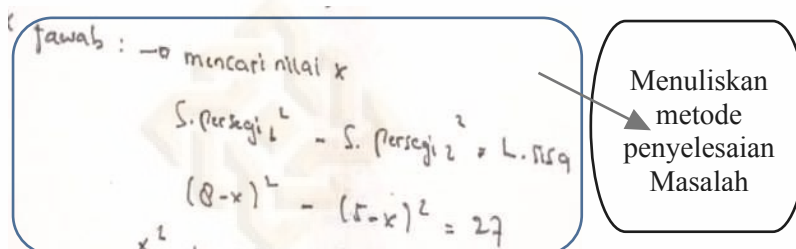 Jawab : → mencari nilai x
S. persegi₁² - S. persegi₂² = L. sisa
(8-x)² - (5-x)² = 27
x²
Menuliskan
metode
penyelesaian
Masalah